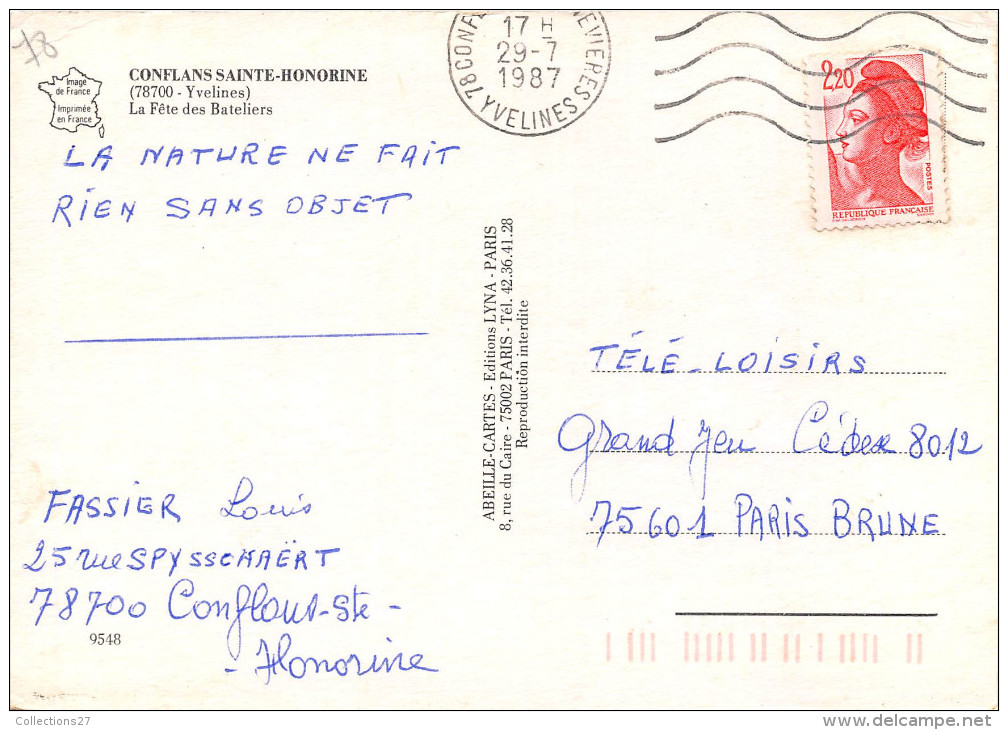 78
Image
de France
Imprimée
en France
CONFLANS SAINTE-HONORINE
(78700 - Yvelines)
La Fête des Bateliers
LA NATURE NE FAIT
RIEN SANS OBJET
FASSIER Louis
25 rue SPYSSCHAËRT
78700 Conflans-Ste-
-Honorine
9548
ABEILLE-CARTES - Editions LYNA - PARIS
8, rue du Caire - 75002 PARIS - Tél. 42.36.41.28
Reproduction interdite
17 H
29-7
1987
78 CONF
NEVIERES
YVELINES
2,20
POSTES
REPUBLIQUE FRANÇAISE
TÉLÉ-LOISIRS
Grand Jeu Cédex 8012
75601 PARIS BRUNE
Collections27